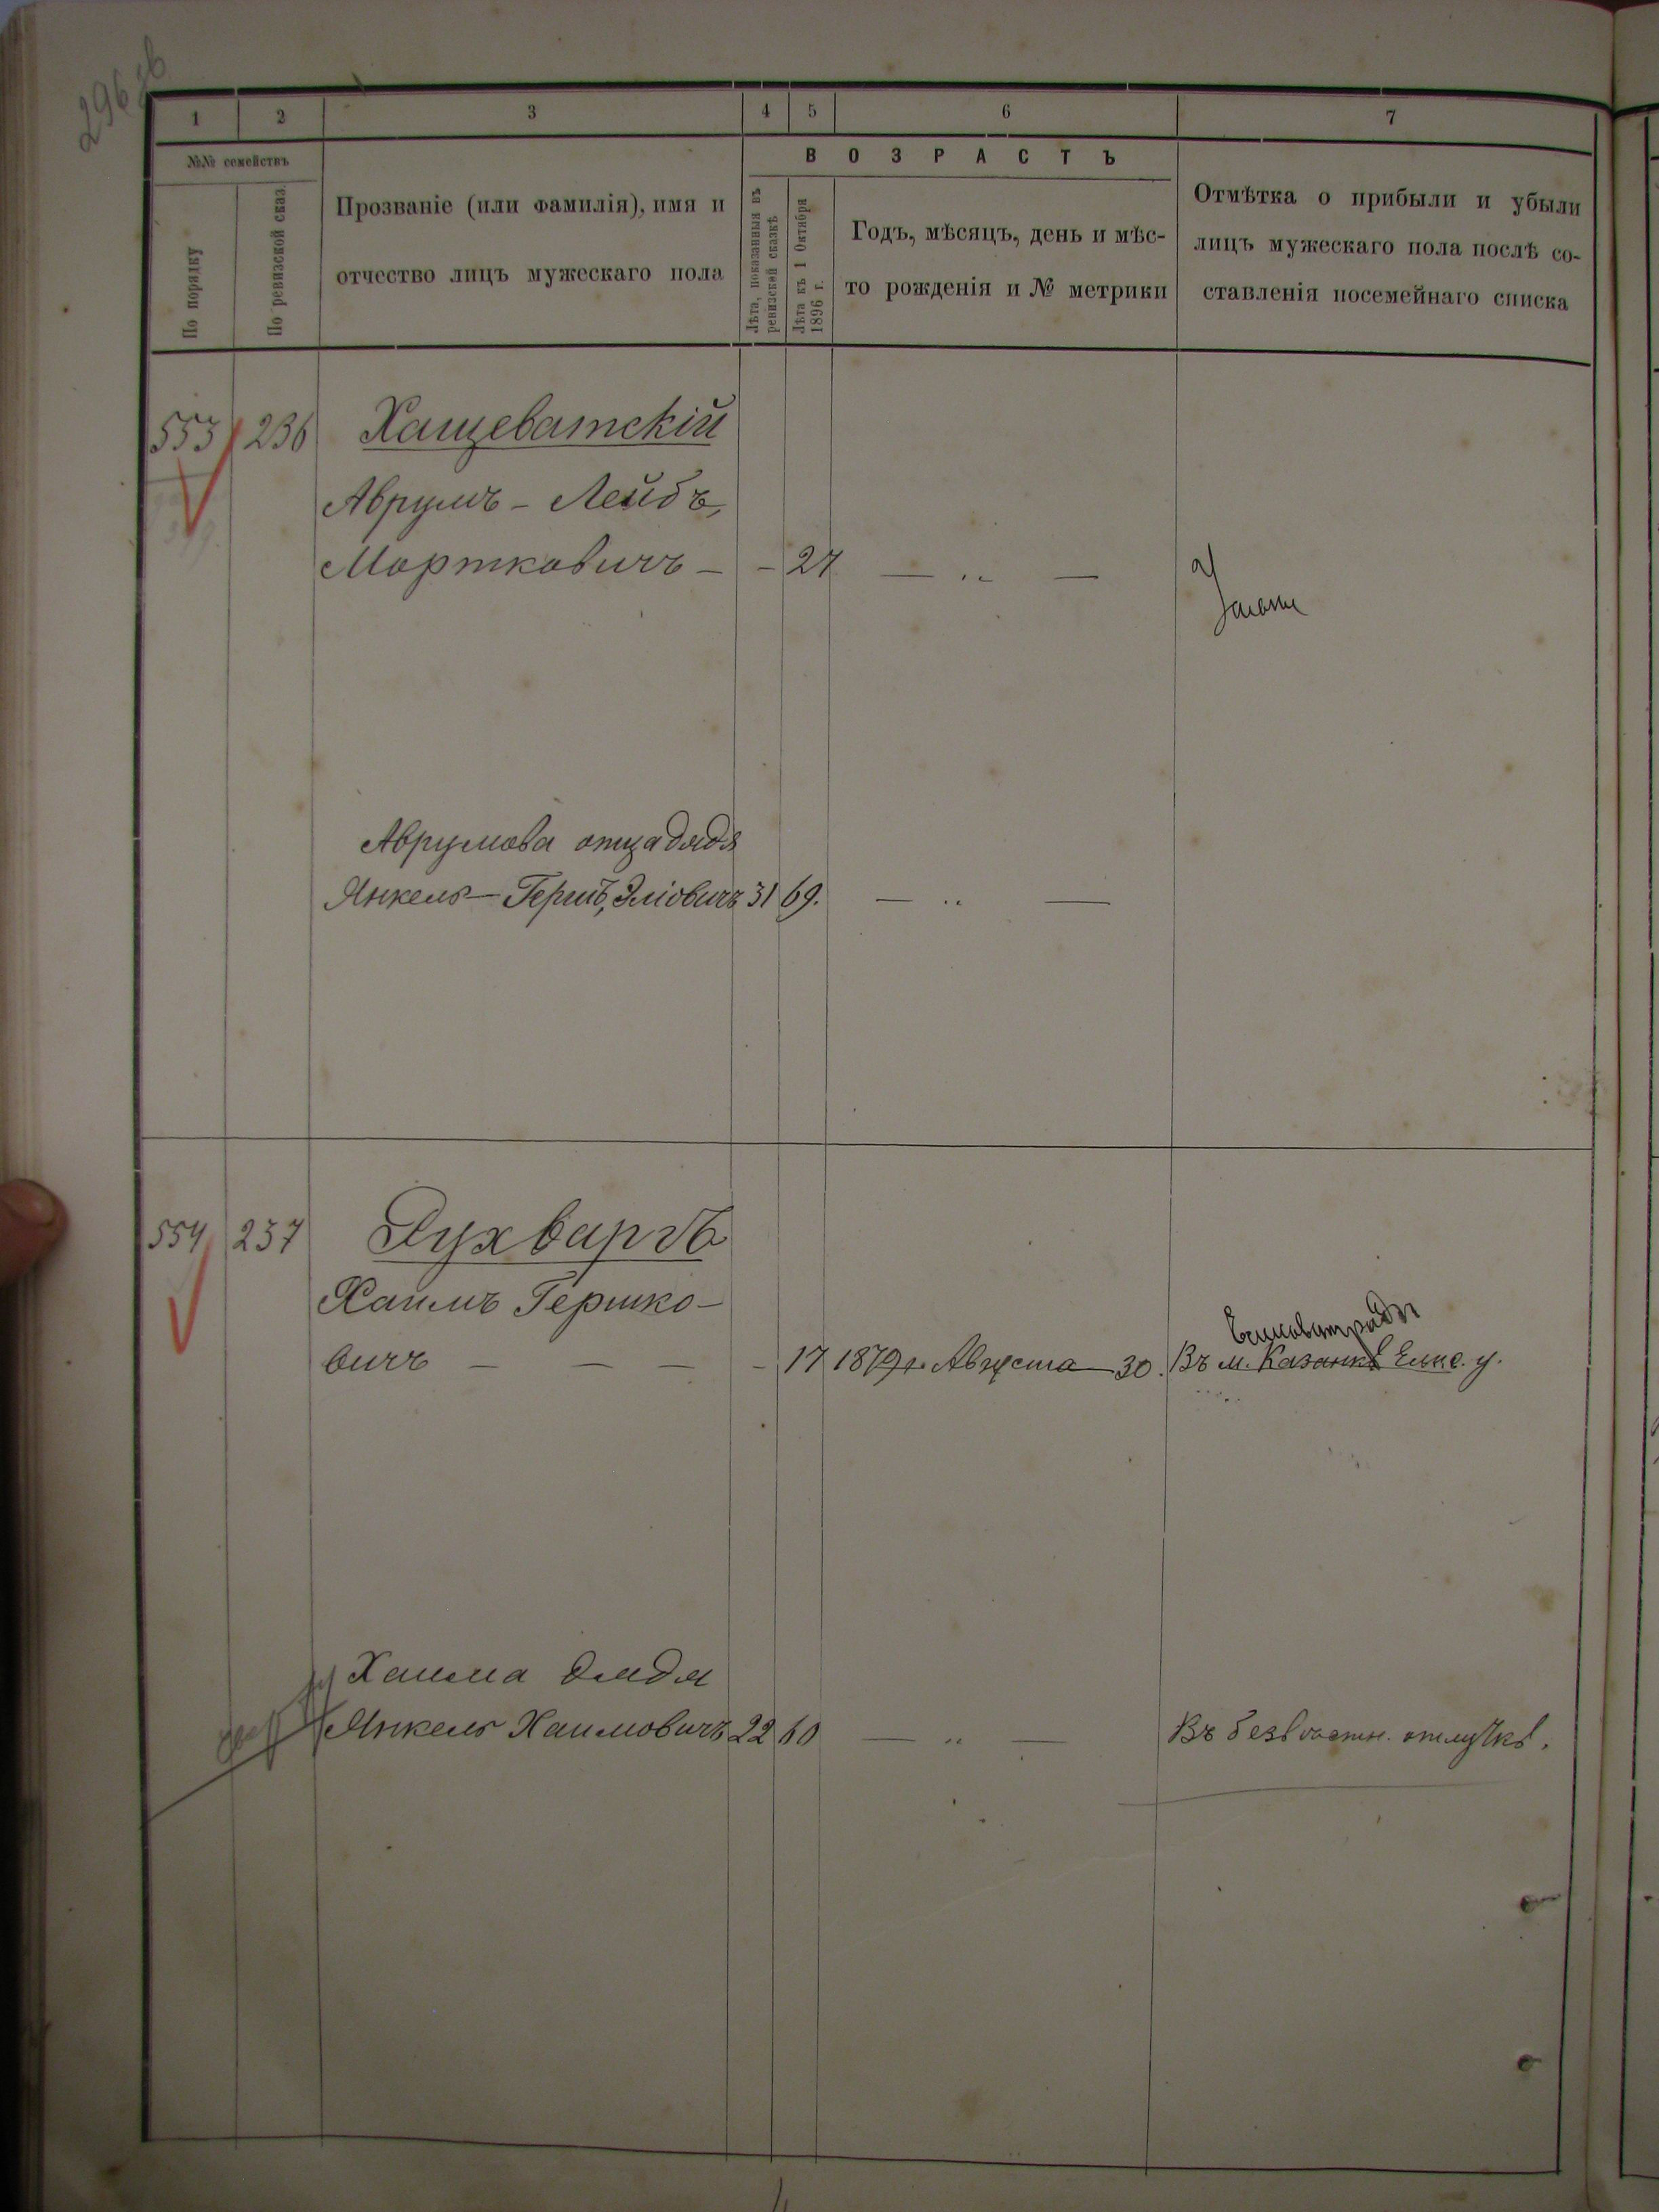 296 об
1 2 3 4 5 6 7
№№ семействъ
По порядку
По ревизской сказ.
Прозваніе (или фамилія), имя и
отчество лицъ мужескаго пола
ВОЗРАСТЪ
Лѣта, показанныя въ
ревизской сказкѣ
Лѣта къ 1 Октября
1896 г.
Годъ, мѣсяцъ, день и мѣс-
то рожденія и № метрики
Отмѣтка о прибыли и убыли
лицъ мужескаго пола послѣ со-
ставленія посемейнаго списка
553 236 Хащеватскій
Аврумъ - Лейбъ,
Мортковичъ - - 27 — „ —
Аврумова отца дядя
Янкель - Гершъ, Эліовичъ 31 69. — „ —
554 237 Духваргъ
Хаимъ Гершко-
Елисаветградѣ
вичъ — — — - 17 1879 г. Августа 30. Въ м. Казанкѣ Елис. у.
Хаима дядя
Янкель Хаимовичъ 22 60 — „ — Въ безвѣстн. отлучкѣ.